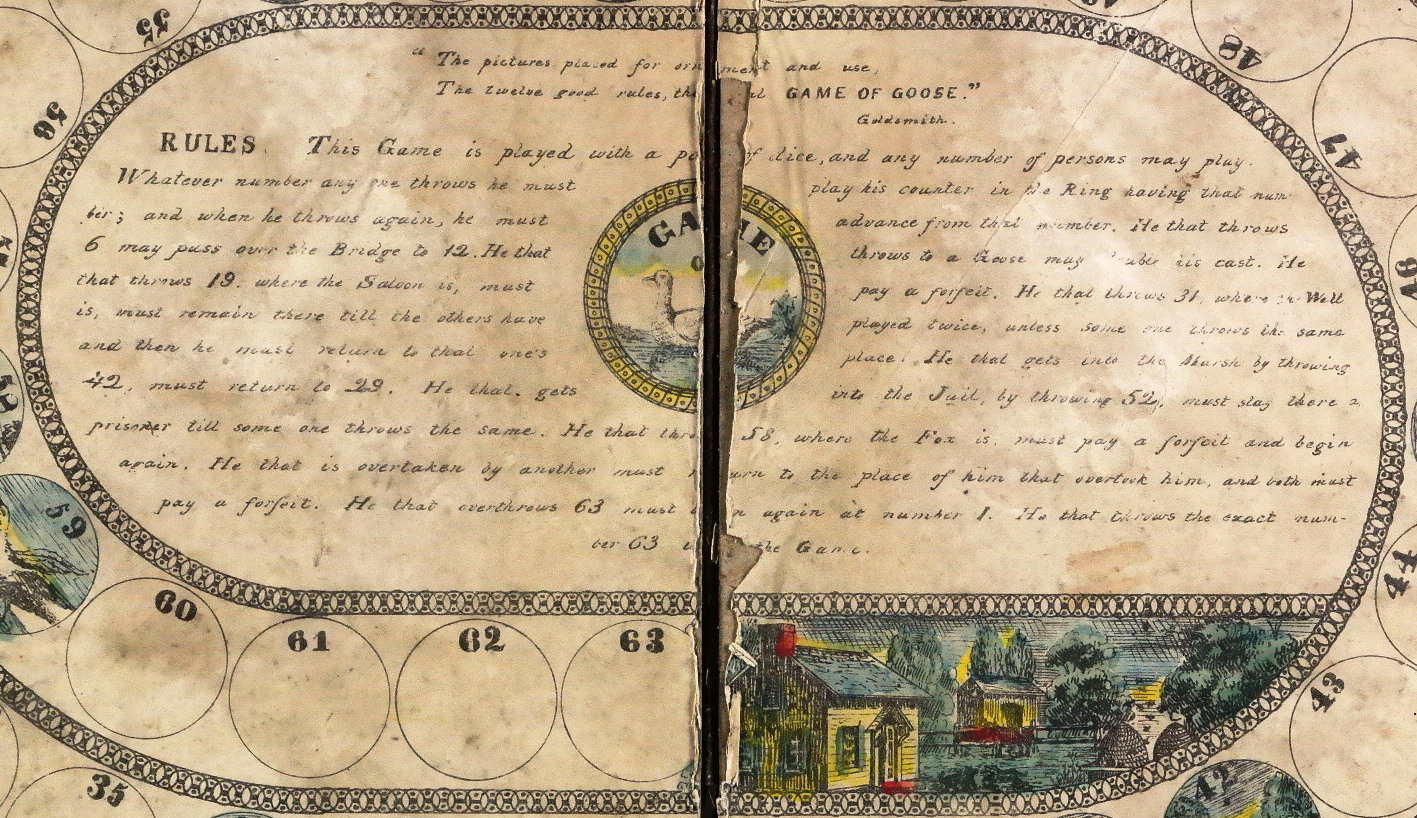 " The pictures placed for ornment and use,
The twelve good rules, the al GAME OF GOOSE."
Goldsmith.
RULES. This Game is played with a pa of dice, and any number of persons may play.
Whatever number any one throws he must play his counter in the Ring having that num-
ber; and when he throws again, he must advance from that number. He that throws
6 may pass over the Bridge to 12. He that throws to a Goose may uble his cast. He
that throws 19, where the Saloon is, must pay a forfeit. He that throws 31, where the Well
is, must remain there till the others have played twice, unless some one throws the same
and then he must return to that one's place. He that gets into the Marsh by throwing
42, must return to 29. He that gets into the Jail, by throwing 52, must stay there a
prisoner till some one throws the same. He that thro 58, where the Fox is, must pay a forfeit and begin
again. He that is overtaken by another must r urn to the place of him that overtook him, and both must
pay a forfeit. He that overthrows 63 must n again at number 1. He that throws the exact num-
ber 63 the Game.
GAME
O
55
56
48
47
46
44
43
42
59
60
61
62
63
35